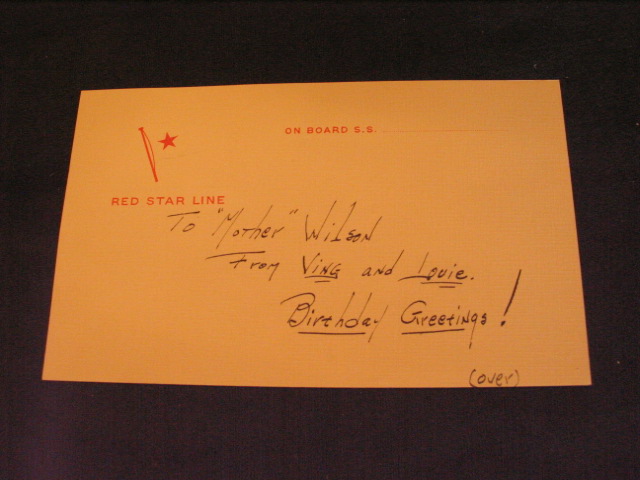 ON BOARD S.S.
RED STAR LINE
To "Mother" Wilson
From Ving and Louie.
Birthday Greetings!
(over)